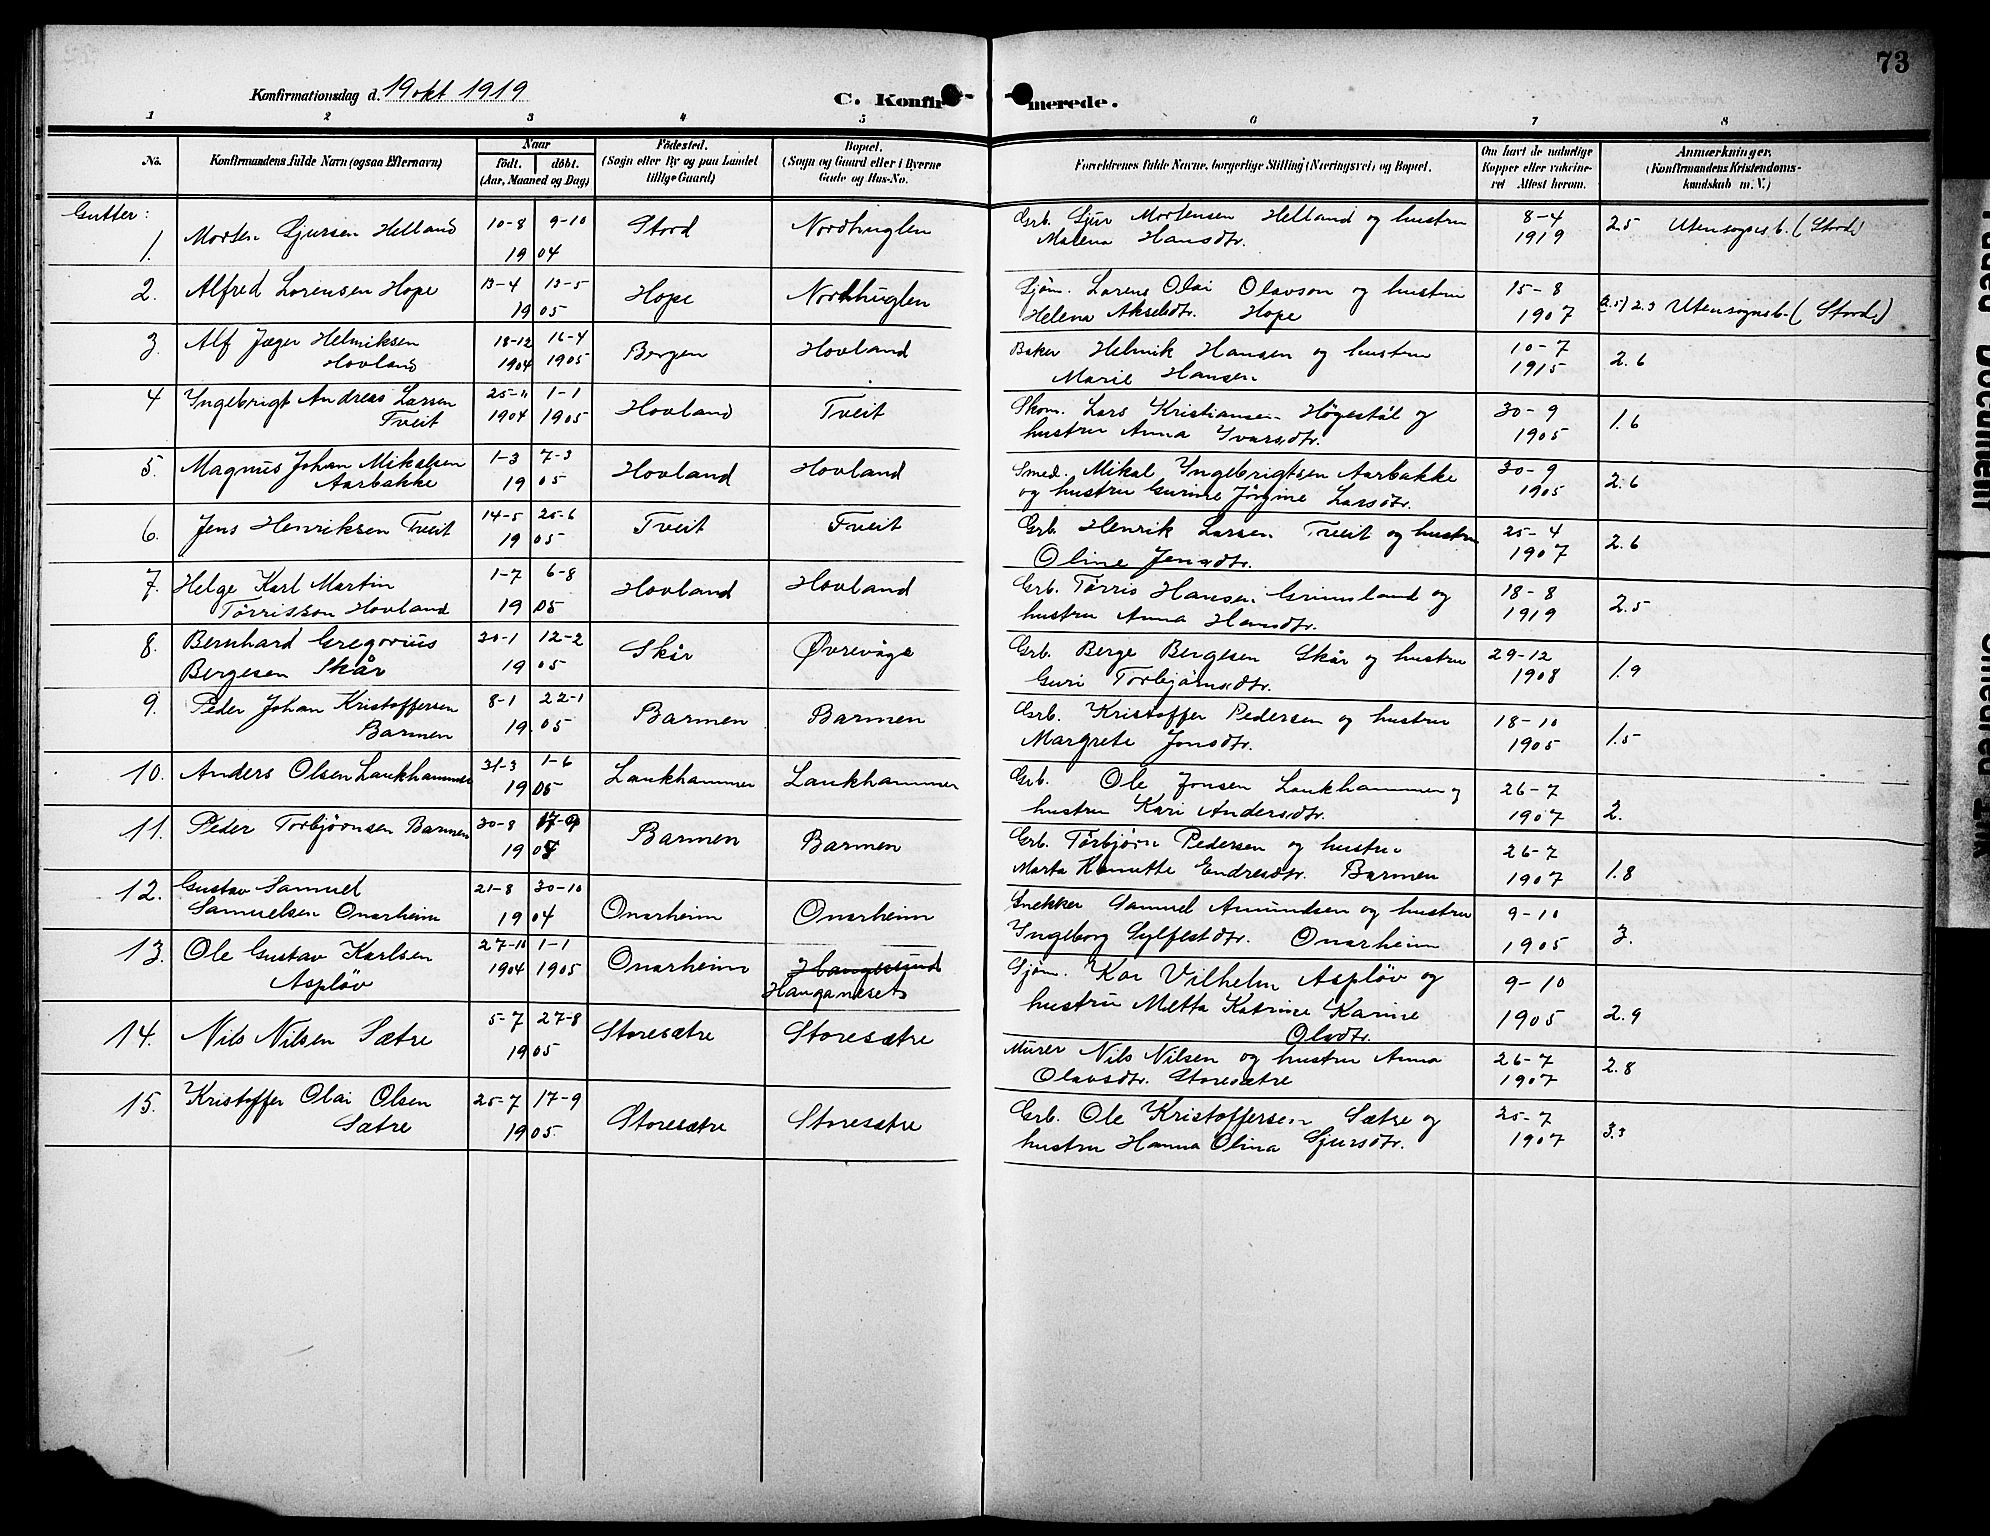 73
Konfirmationsdag d. 19 okt 1919
C. Konfirmerede.
1 2 3 4 5 6 7 8
No.
Konfirmandens fulde Navn (ogsaa Efternavn)
Naar
födt. döbt.
(Aar, Maaned og Dag)
Födested.
(Sogn eller By og paa Landet
tillige Gaard)
Bopæl.
(Sogn og Gaard eller i Byerne
Gade og Hus-No.
Forældrenes fulde Navne, borgerlige Stilling (Næringsvei) og Bopæl.
Om havt de naturlige
Kopper eller vakcine-
ret Attest herom.
Anmærkninger,
(Konfirmandens Kristendoms-
kundskab m. V.)
Gutter:
1. Morten Sjursen Helland 10-8 9-10 1904 Stord Nordhuglen Grb. Sjur Mortensen Helland og hustru
Malena Hansdtr. 8-4 1919 2.5 Utensognsb. (Stord)
2. Alfred Lorensen Hope 13-4 13-5 1905 Hope Nordhuglen Sjøm. Lorens Olai Olavson og hustru
Helena Akseldtr. Hope 15-8 1907 (2.5) 2.3 Utensognsb. (Stord.)
3. Alf Jæger Helmiksen
Hovland 18-12 1904 16-4 1905 Bergen Hovland Baker Helmik Hansen og hustru
Marie Hansen 10-7 1915 2.6
4 Yngebrigt Andreas Larsen
Tveit 25-11 1904 1-1 1905 Hovland Tveit Skom. Lars Kristiansen Høgestøl og
hustru Anna Ivarsdtr. 30-9 1905 1.6
5. Magnus Johan Mikalsen
Aarbakke 1-3 7-3 1905 Hovland Hovland Smed. Mikal Yngebrigtsen Aarbakke
og hustru Gurine Jørgine Larsdtr. 30-9 1905 2.6
6. Jens Henriksen Tveit 14-5 25-6 1905 Tveit Tveit Grb. Henrik Larsen Tveit og hustru
Oline Jensdtr. 25-4 1907 2.6
7. Helge Karl Martin
Tørrisson Hovland 1-7 6-8 1905 Hovland Hovland Grb. Tørris Hansen Grimsland og
hustru Anna Hansdtr. 18-8 1919 2.5
8. Bernhard Gregorius
Bergesen Skår 20-1 12-2 1905 Skår Øvrevåge Grb. Berge Bergesen Skår og hustru
Guri Torbjørnsdtr. 29-12 1908 1.9
9. Peder Johan Kristoffersen
Barmen 8-1 22-1 1905 Barmen Barmen Grb. Kristoffer Pedersen og hustru
Margrete Jonsdtr. 18-10 1905 1.5
10. Anders Olsen Laukhammer 31-3 1-6 1905 Laukhammer Laukhammer Grb. Ole Jonsen Laukhammer og
hustru Kari Andersdtr. 26-7 1907 2.
11. Peder Torbjørnsen Barmen 30-8 17-9 Barmen Barmen Grb. Torbjørn Pedersen og hustru
Marta Hanutte Endresdtr. Barmen 26-7 1907 1.8
12. Gustav Samuel
Samuelsen Onarheim 21-8 30-10 1904 Onarheim Onarheim Snekker Samuel Amundsen og hustru
Yngeborg Sylfestdtr. Onarheim 9-10 1905 3.
13. Ole Gustav Karlsen
Aspløv 27-10 1904 1-1 1905 Onarheim Haugesund
Hauganeset Sjøm. Kar Vilhelm Aspløv og
hustru Metta Katrine Karine
Olsdtr. 9-10 1905 2.9
14. Nils Nilsen Sætre 5-7 27-8 1905 Storesætre Storesætre Murer Nils Nilsen og hustru Anna
Olavsdtr. Storesætre 26-7 1907 2.8
15. Kristoffer Olai Olsen
Sætre 25-7 17-9 1905. Storesætre Storesætre Grb. Ole Kristoffersen Sætre og
hustru Hanna Olina Sjursdtr. 25-7 1907 3.3